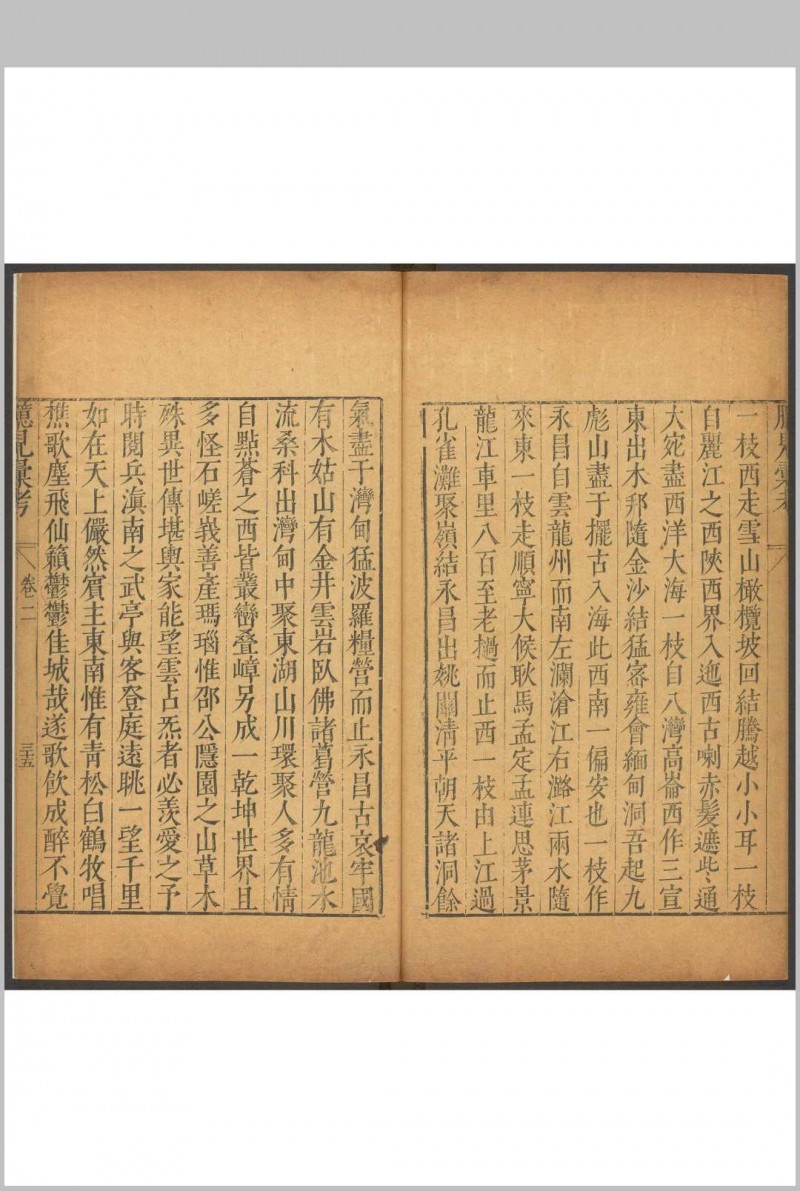 一枝西走雪山橄欖坡回結騰越小小耳一枝
自麗江之西陝西界入迤西古喇赤髮遮些通
大宛盡西洋大海一枝自八灣高崙西作三宣
東出木邦隨金沙結猛密雍會緬甸洞吾起九
彪山盡于擺古入海此西南一偏安也一枝作
永昌自雲龍州而南左瀾滄江右潞江兩水隨
來東一枝走順寧大候耿馬孟定孟連思茅景
龍江車里八百至老撾而止西一枝由上江過
孔雀灘聚嶺結永昌出姚關清平朝天諸洞餘
氣盡于灣甸猛波羅糧營而止永昌古哀牢國
有木姑山有金井雲岩臥佛諸葛營九龍池水
流桑科出灣甸中聚東湖山川環聚人多有情
自點蒼之西皆叢巒叠嶂另成一乾坤世界且
多怪石嵯峩善產瑪瑙惟邵公隱園之山草木
殊異世傳堪輿家能望雲占炁者必羨愛之予
時閱兵滇南之武亭與客登庭遠眺一望千里
如在天上儼然賓主東南惟有青松白鶴牧唱
樵歌塵飛仙籟鬱鬱佳城哉遂歌飲成醉不覺
臆見彙考
卷二
三五